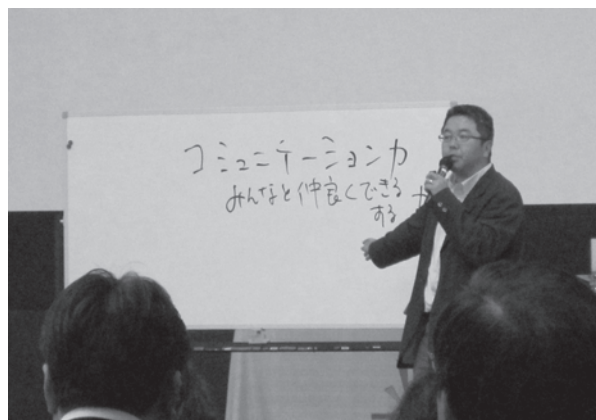 コミュニケーション力
みんなと仲良くできる
する